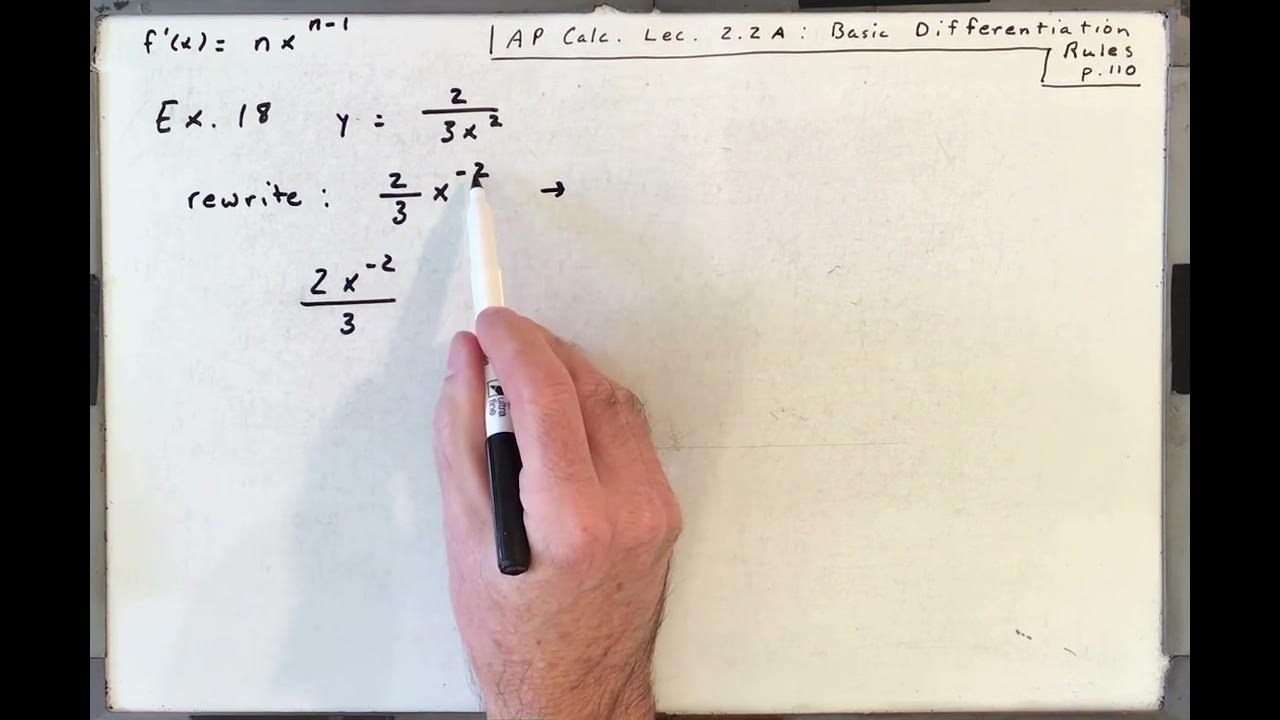 f'(x) = n x^{n-1}
AP Calc. Lec. 2.2A: Basic Differentiation
Rules
p.110
Ex. 18 y = \frac{2}{3x^2}
rewrite: \frac{2}{3} x^{-2} →
\frac{2x^{-2}}{3}
ultra
fine